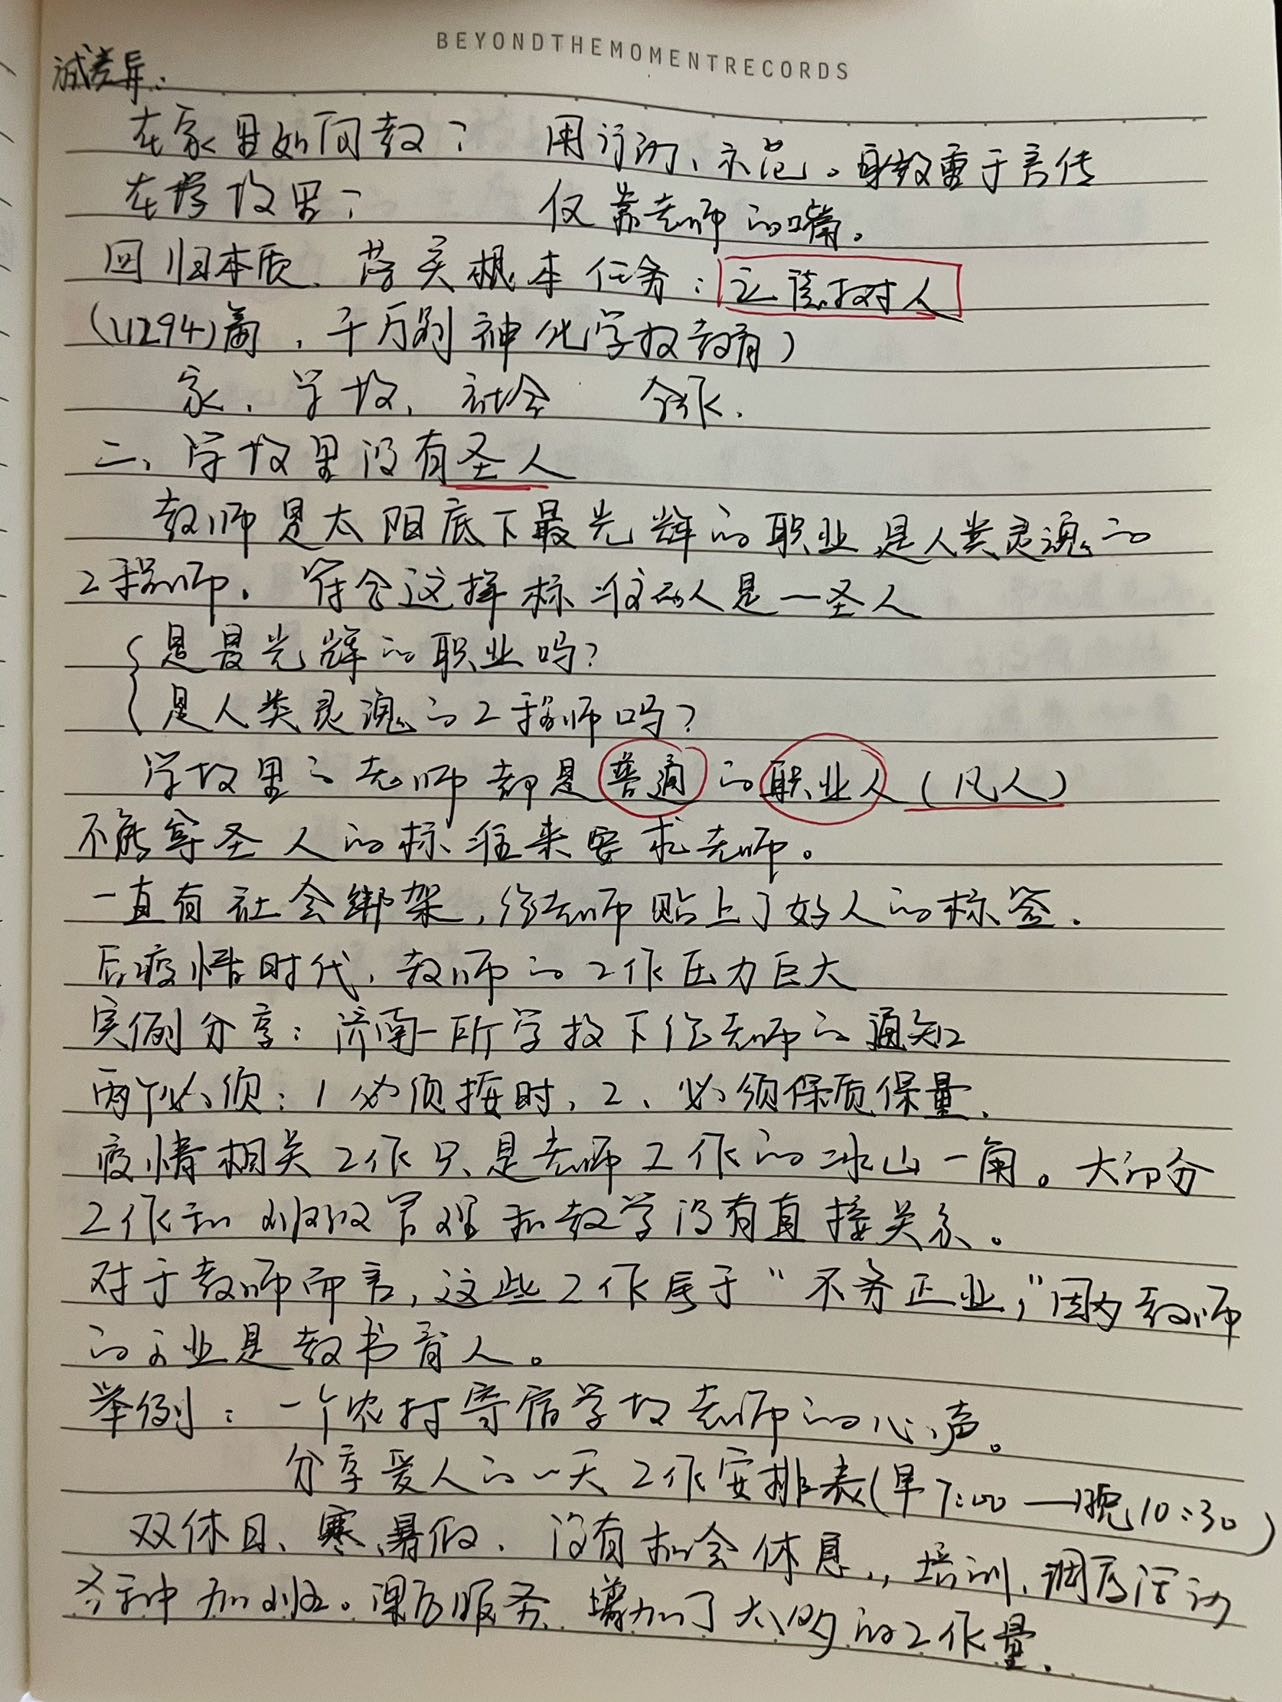 BEYONDTHEMOMENTRECORDS
减差异：
在家里如何教？ 用行动、示范。身教重于言传
在学校里？ 仅靠老师的嘴。
回归本质、落实根本任务：立德树人
(U294)篇，千万别神化学校教育）
家、学校、社会 合作.
二、学校里没有圣人
教师是太阳底下最光辉的职业是人类灵魂的
工程师。符合这择标准的人是一圣人
是最光辉的职业吗？
是人类灵魂的工程师吗？
学校里的老师都是普通的职业人（凡人）
不能拿圣人的标准来要求老师。
一直有社会绑架，给老师贴上了好人的标签.
后疫情时代，教师的工作压力巨大
实例分享：济南一所学校下给老师的通知
两个必须：1 必须按时、2、必须保质保量.
疫情相关工作只是老师工作的冰山一角。大部分
工作和班级管理和教学没有直接关系。
对于教师而言，这些工作属于“不务正业，”因为教师
的主业是教书育人。
举例：一个农村寄宿学校老师的心声。
分享爱人的一天工作安排表(早7:00—晚10:30)
双休日、寒、暑假、没有机会休息，，培训、调房活动
各种加班。课后服务 增加了太多的工作量.